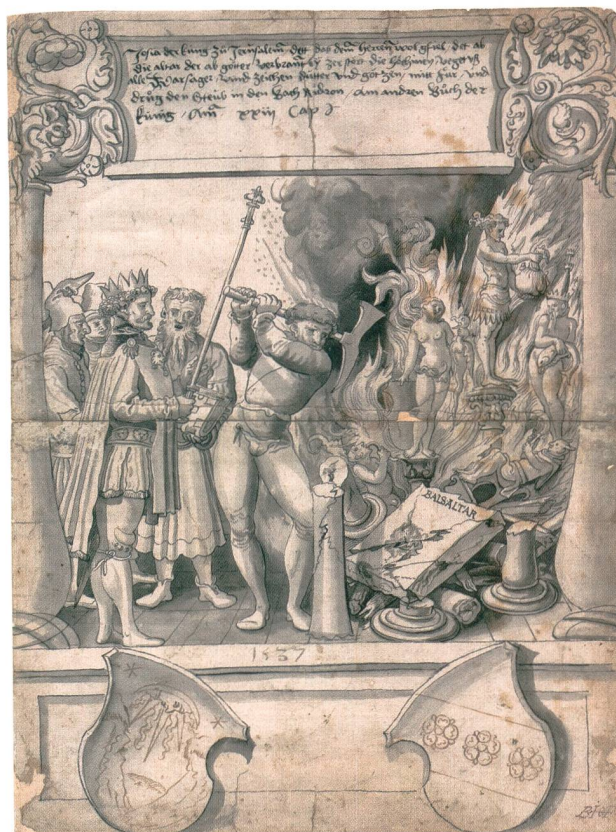 Josia der kung zů Jerusalem der das dem herren wol gfiel det ab
die altar der ab götter verbrant sy zerstört die höhinen
alle Warsager und Zeichen dütter und götzen, mitt für und
drůg den Steub in den Bach Kidron Am andren Bůch der
kunig Am XXIII Cap
BALSALTAR
1537